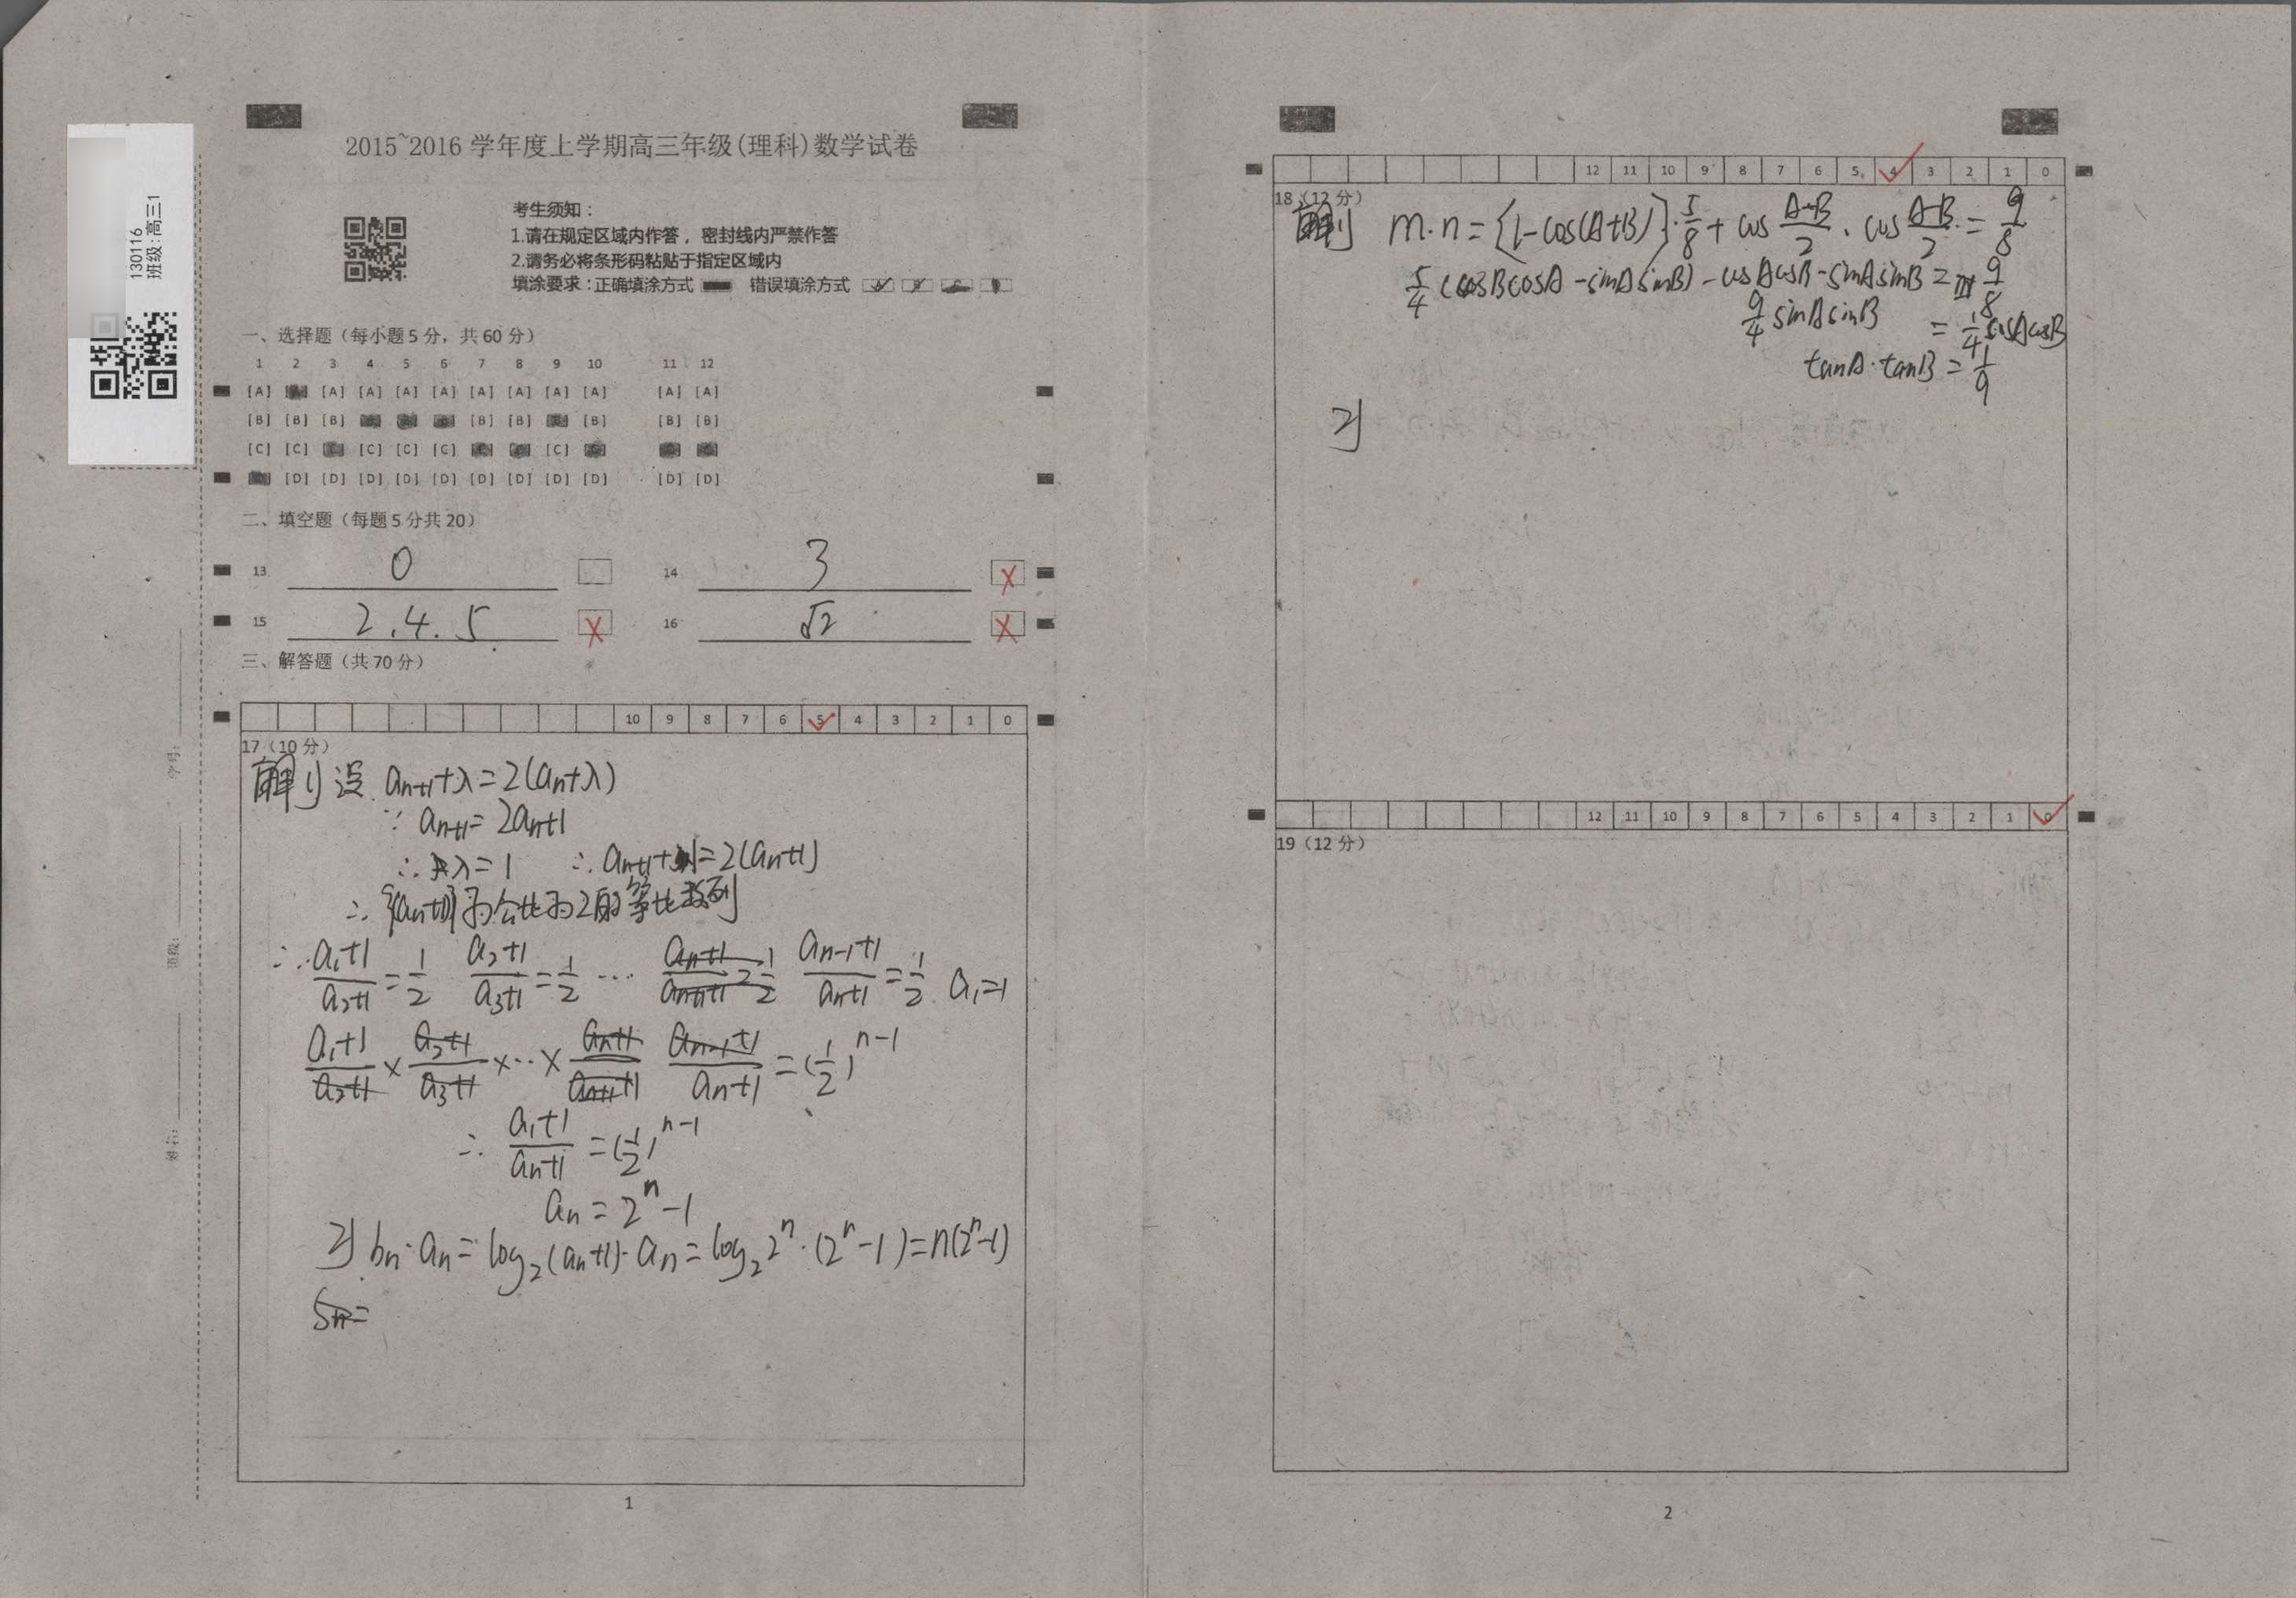 130116
班级:高三1
2015~2016 学年度上学期高三年级(理科)数学试卷
考生须知：
1.请在规定区域内作答，密封线内严禁作答
2.请务必将条形码粘贴于指定区域内
填涂要求：正确填涂方式 错误填涂方式
一、选择题（每小题5分，共60分）
1 2 3 4 5 6 7 8 9 10 11 12
[A] [A] [A] [A] [A] [A] [A] [A] [A] [A] [A]
[B] [B] [B] [B] [B] [B] [B] [B]
[C] [C] [C] [C] [C] [C]
[D] [D] [D] [D] [D] [D] [D] [D] [D] [D] [D]
二、填空题（每题5分共20）
13 0 14 3 X
15 2.4.5 X 16 √2 X
三、解答题（共70分）
10 9 8 7 6 5 4 3 2 1 0
17（10分）
解1) 设 aₙ₊₁+λ=2(aₙ+λ)
∵ aₙ₊₁=2aₙ+1
∴ λ=1 ∴ aₙ₊₁+1=2(aₙ+1)
∴ {(aₙ+1)}为公比为2的等比数列
∴ (a₁+1)/(a₂+1)=1/2 (a₂+1)/(a₃+1)=1/2 ... (aₙ₋₁+1)/(aₙ+1)=1/2 a₁=1
(a₁+1)/(a₂+1) × (a₂+1)/(a₃+1) ×...× (aₙ₋₁+1)/(aₙ+1) =(1/2)ⁿ⁻¹
∴ (a₁+1)/(aₙ+1) =(1/2)ⁿ⁻¹
aₙ=2ⁿ-1
2) bₙ·aₙ=log₂(aₙ+1)·aₙ=log₂2ⁿ·(2ⁿ-1)=n(2ⁿ-1)
Sₙ=
学号:
班级:
姓名:
1
12 11 10 9 8 7 6 5 4 3 2 1 0
18（12分）
解1) m·n=[1-cos(A+B)]·5/8+cos (A-B)/2 · cos (A-B)/2 = 9/8
5/4(cosBcosA-sinAsinB)-cosAcosB-sinAsinB= 9/8
9/4 sinAsinB = 1/4 cosAcosB
tanA·tanB=1/9
2)
12 11 10 9 8 7 6 5 4 3 2 1 0
19（12分）
2